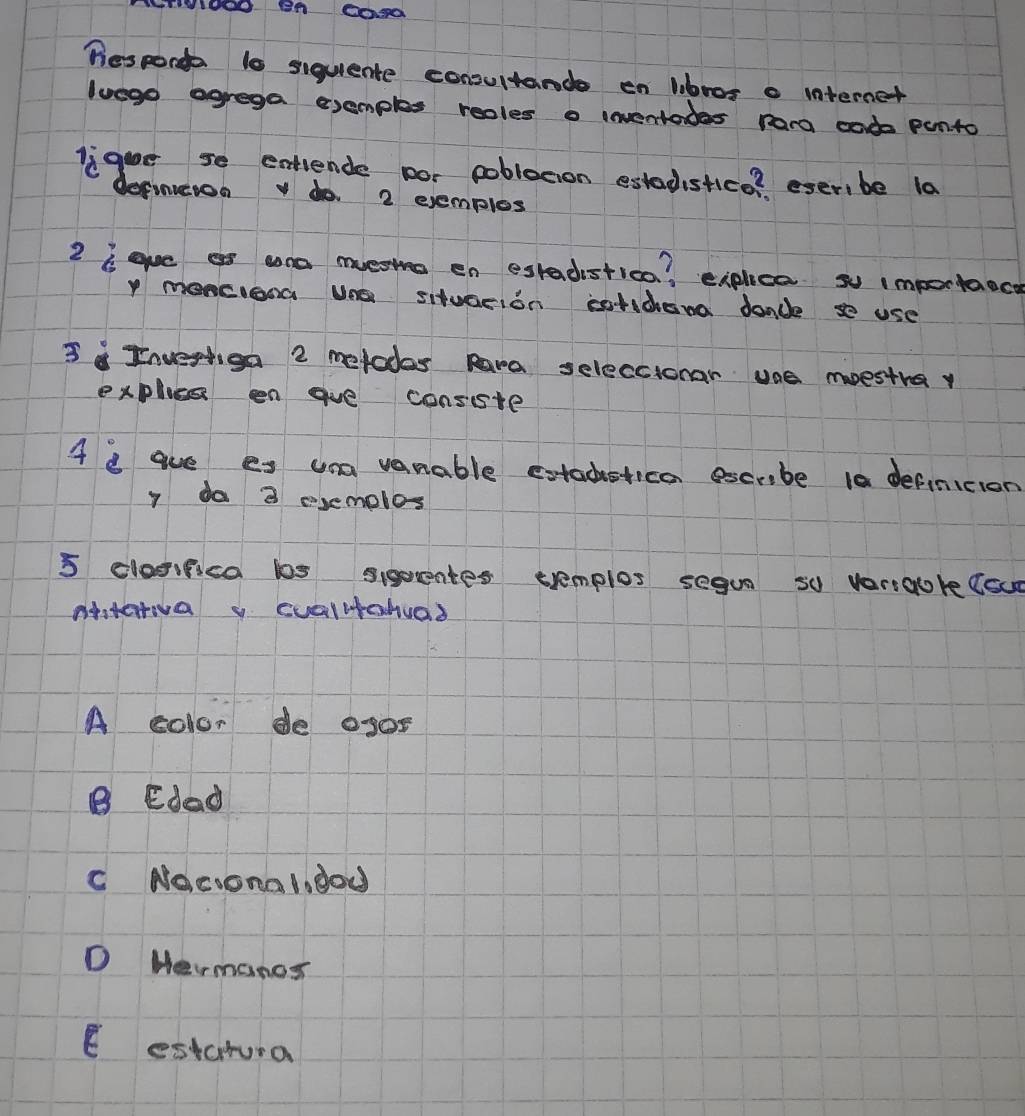 Actividad en casa
Responda lo siguiente consultando en libros o internet
luego agrega ejemplos reales o inventados para cada punto
1¿que se entiende por poblacion estadistica? escribe la
definicion y da. 2 ejemplos
2 ¿ que es una muestra en estadistica? explica su importanci
y menciona una situación cotidiana donde se use
3 Investiga 2 metodos para seleccionar una muestra y
explica en que consiste
4 ¿ que es una variable estadistica escribe la definicion
y da 2 ejemplos
5 clasifica los siguientes ejemplos segun su variable (cua
ntitativa y cualitativas
A color de ojos
B Edad
C Nacionalidad
D Hermanos
E estatura